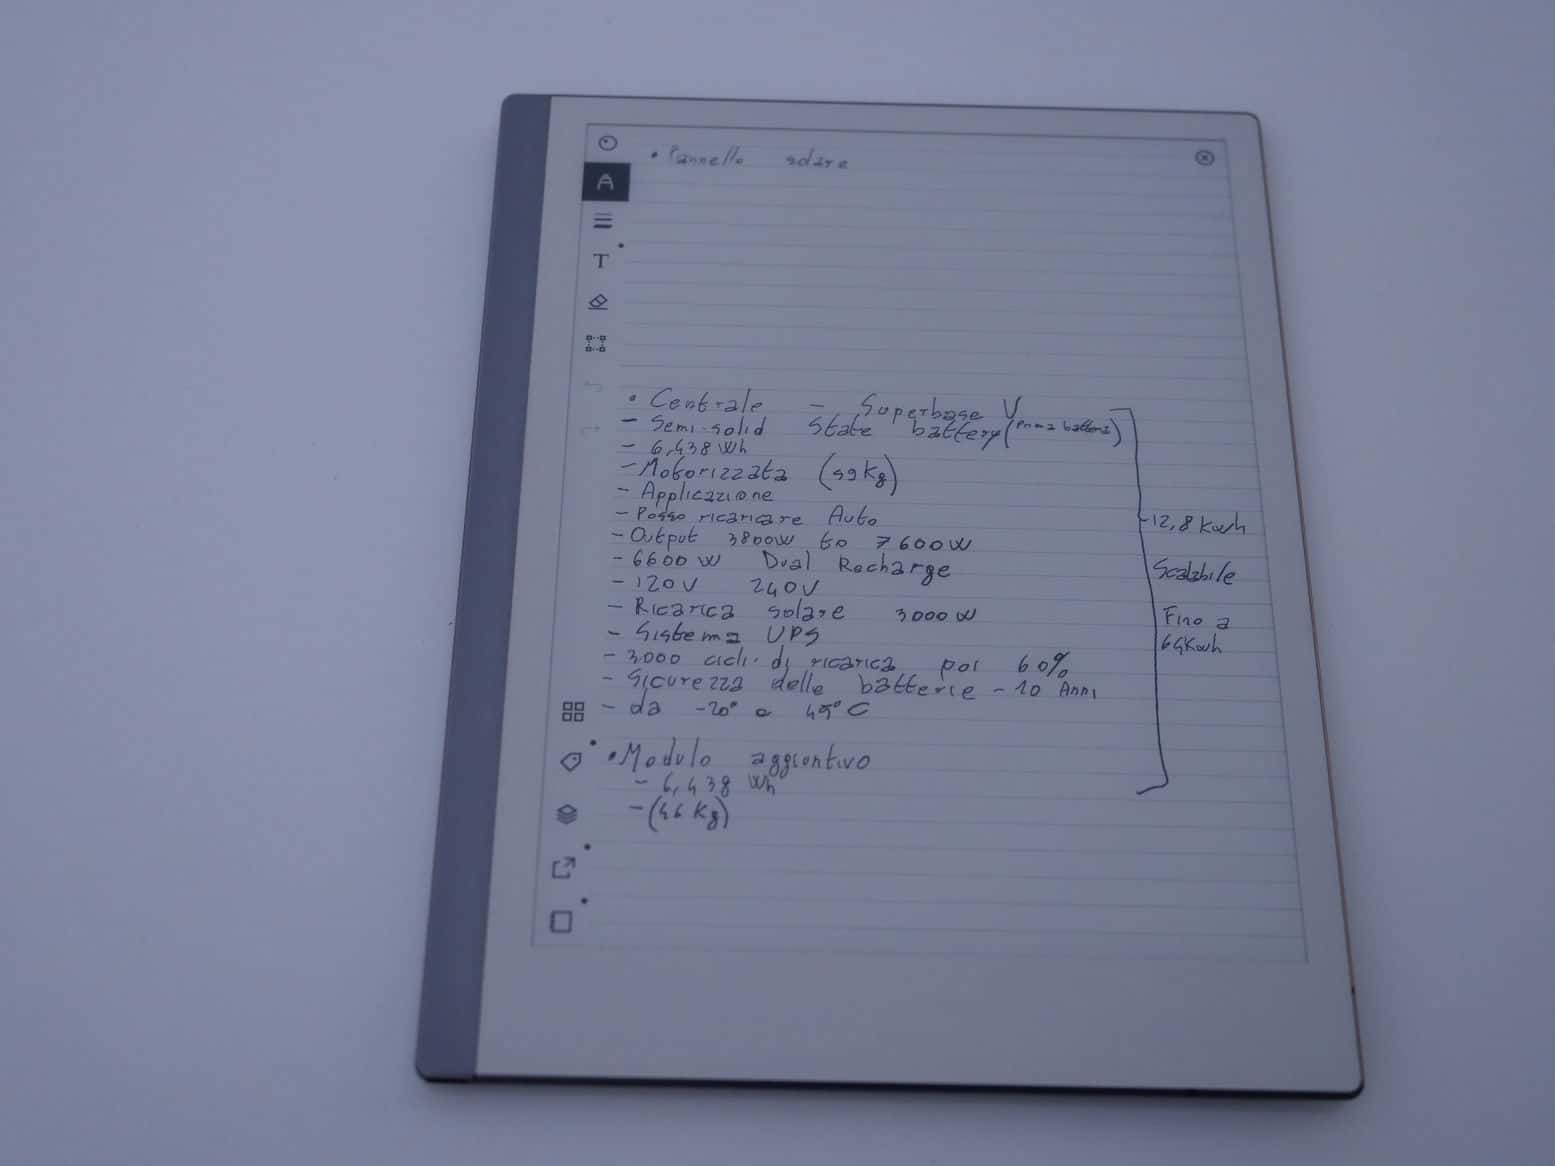 • Pannello solare
• Centrale - Superbase V
- Semi-solid State battery (prima batteria)
- 6,438 Wh
- Motorizzata (59 Kg)
- Applicazione
- Posso ricaricare Auto
- Output 3800W to 7600W
- 6600 W Dual Recharge
- 120V 240V
- Ricarica solare 3000 W
- Sistema UPS
- 3000 cicli di ricarica poi 60%
- Sicurezza delle batterie - 10 Anni
- da -20° a 45° C
- 12,8 Kwh
Scalabile
Fino a
64Kwh
• Modulo aggiuntivo
- 6,438 Wh
- (46 Kg)